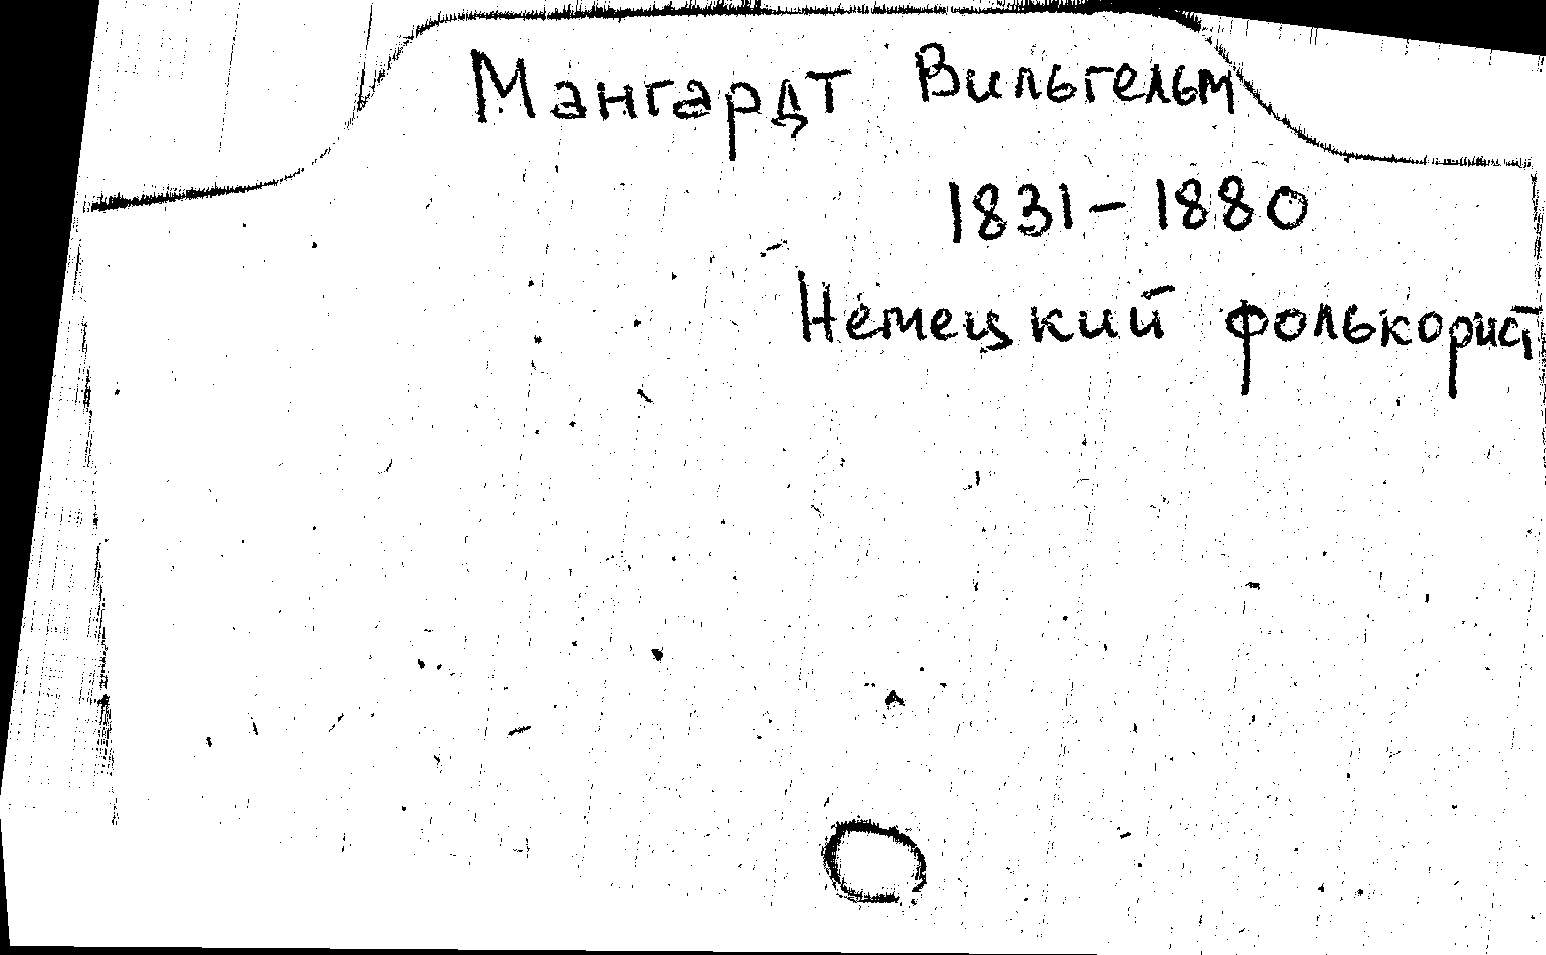 Мангардт Вильгельм
1831-1880
Немецкий фолькорист